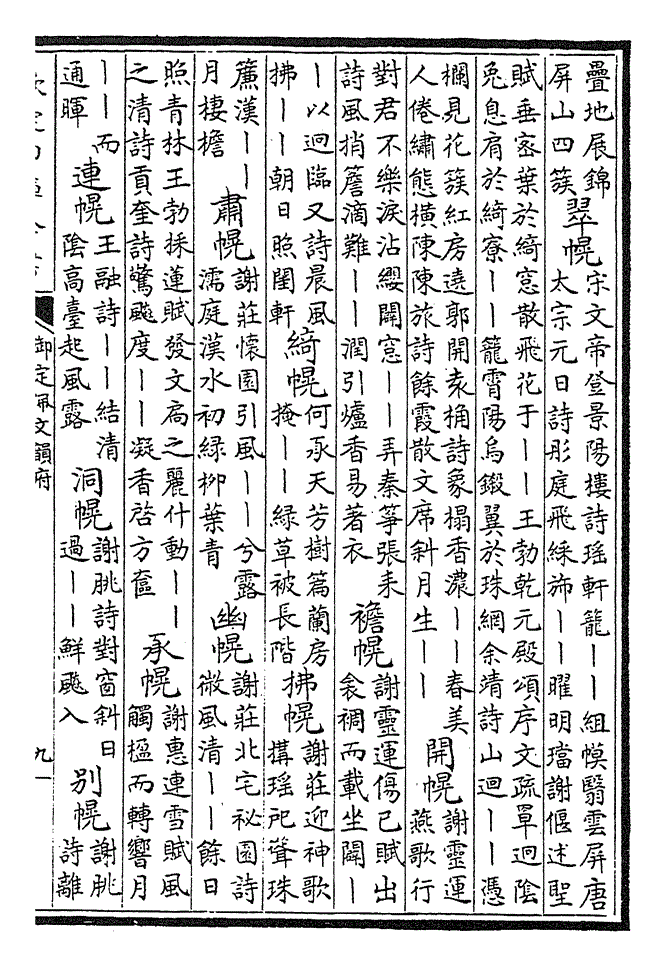 疊地展錦
屏山四簇
翠幌
宋文帝登景陽樓詩瑶軒籠——組幙翳雲屏唐
太宗元日詩彤庭飛綵斾——曜明璫謝偃述聖
賦垂宻葉於綺窓散飛花于——王勃乾元殿頌序文疏罩迥陰
兔息肩於綺寮——籠霄陽烏鎩翼於珠網余靖詩山迴——慿
欄見花簇紅房遶郭開袁桷詩象榻香濃——春美
人倦繡態横陳陳旅詩餘霞散文席斜月生——
開幌
謝靈運
燕歌行
對君不樂淚沾纓闢窓——弄秦筝張耒
詩風捎簷滴難——潤引爐香易著衣
襜幌
謝靈運傷己賦出
衾裯而載坐闢—
—以迥臨又詩晨風
拂——朝日照閨軒
綺幌
何承天芳樹篇蘭房
掩——綠草被長階
拂幌
謝莊迎神歌
搆瑶戺聳珠
簾漢——
月棲檐
肅幌
謝莊懷園引風——兮露
濡庭漢水初緑栁葉青
幽幌
謝莊北宅祕園詩
微風清——餘日
照青林王勃採蓮賦發文扃之麗什動——
之清詩貢奎詩驚飈度——凝香啓方奩
承幌
謝惠連雪賦風
觸楹而轉響月
——而
通暉
連幌
王融詩——結清
陰高臺起風露
洞幌
謝朓詩對窗斜日
過——鮮飈入
别幌
謝朓
詩離
御定佩文韻府
九